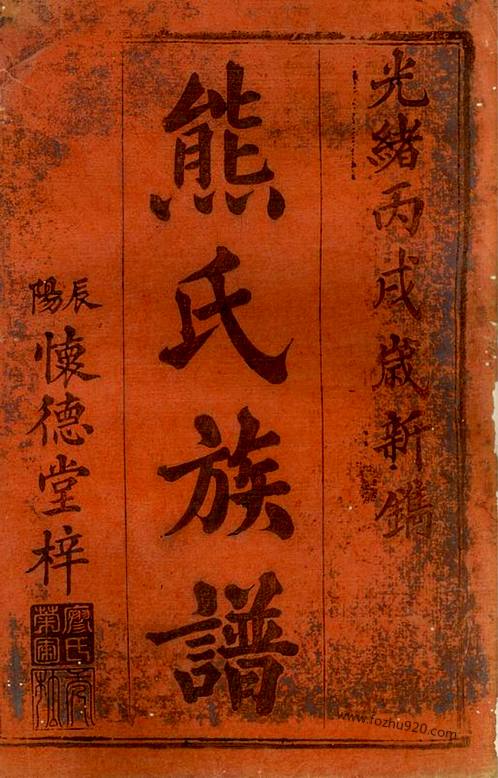 光緒丙戌歲新鐫
熊氏族譜
辰陽
懷德堂梓
www.fozhu920.com